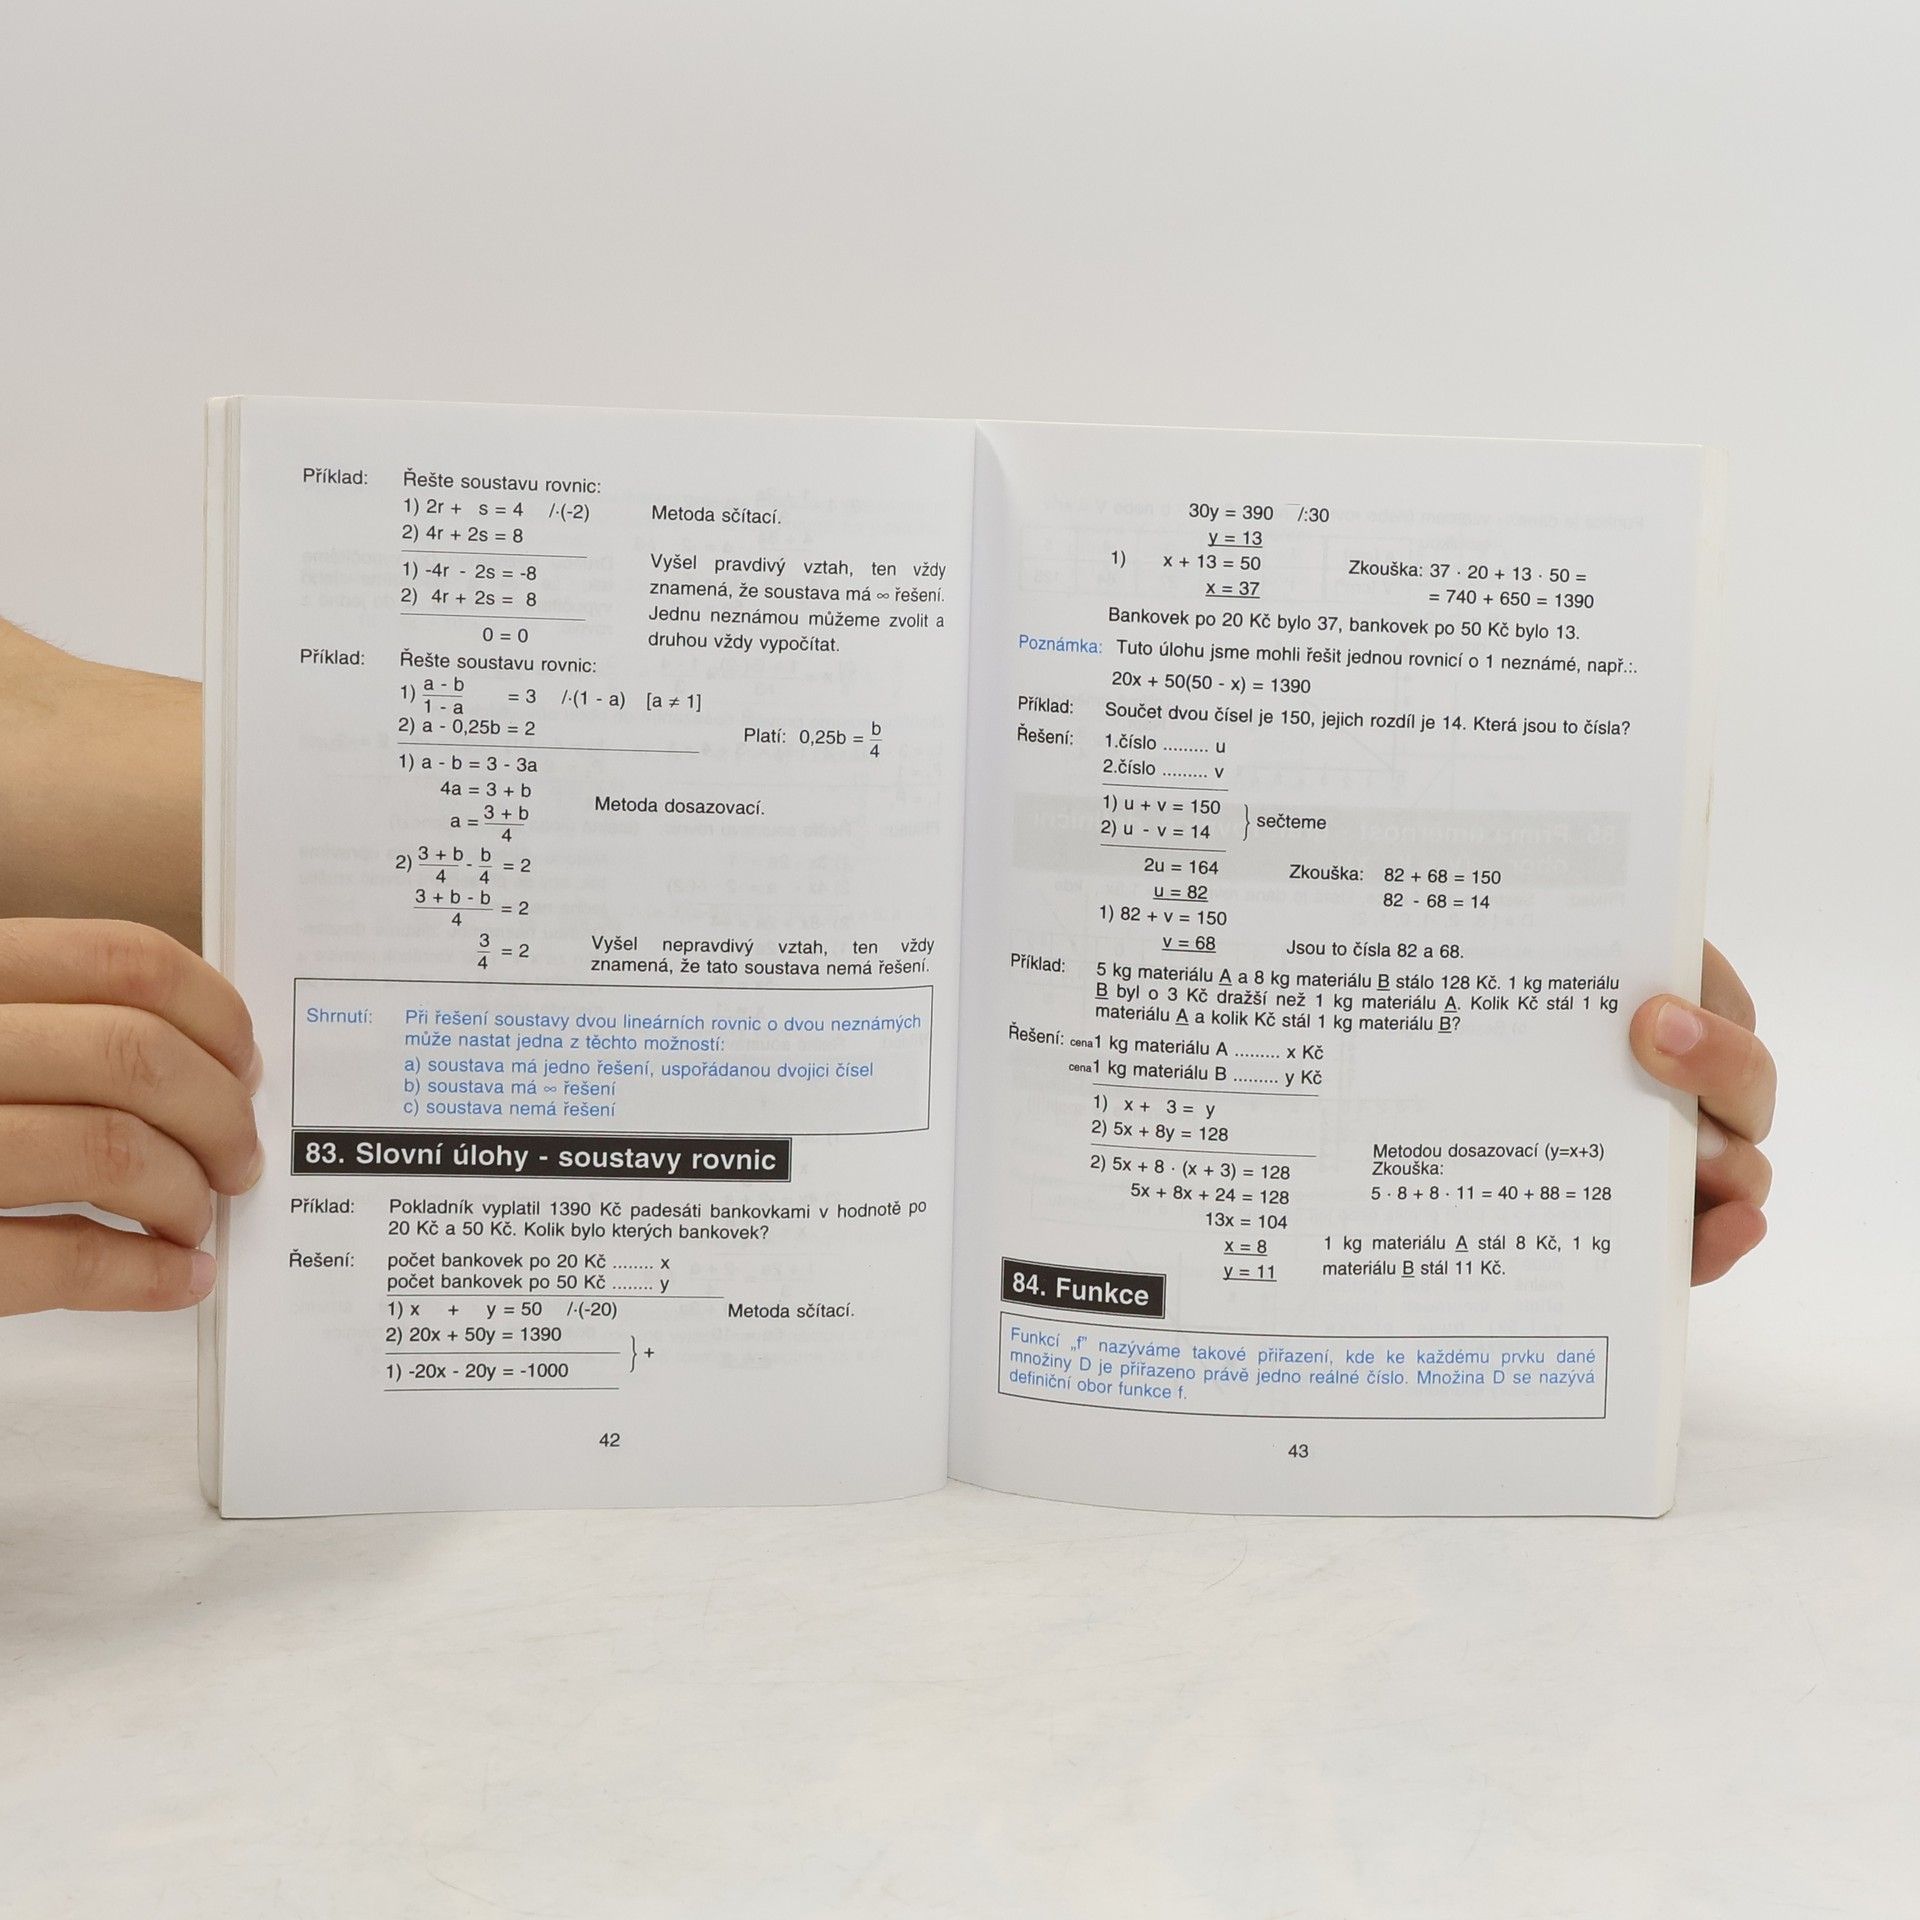 Příklad: Řešte soustavu rovnic:
1) 2r + s = 4 /·(-2) Metoda sčítací.
2) 4r + 2s = 8
1) -4r - 2s = -8 Vyšel pravdivý vztah, ten vždy
2) 4r + 2s = 8 znamená, že soustava má ∞ řešení.
Jednu neznámou můžeme zvolit a
0 = 0 druhou vždy vypočítat.
Příklad: Řešte soustavu rovnic:
1) a - b / 1 - a = 3 /·(1 - a) [a ≠ 1]
2) a - 0,25b = 2 Platí: 0,25b = b/4
1) a - b = 3 - 3a
4a = 3 + b
a = 3 + b / 4 Metoda dosazovací.
2) 3 + b / 4 - b / 4 = 2
3 + b - b / 4 = 2
3 / 4 = 2 Vyšel nepravdivý vztah, ten vždy
znamená, že tato soustava nemá řešení.
Shrnutí: Při řešení soustavy dvou lineárních rovnic o dvou neznámých
může nastat jedna z těchto možností:
a) soustava má jedno řešení, uspořádanou dvojici čísel
b) soustava má ∞ řešení
c) soustava nemá řešení
83. Slovní úlohy - soustavy rovnic
Příklad: Pokladník vyplatil 1390 Kč padesáti bankovkami v hodnotě po
20 Kč a 50 Kč. Kolik bylo kterých bankovek?
Řešení: počet bankovek po 20 Kč ........ x
počet bankovek po 50 Kč ........ y
1) x + y = 50 /·(-20) Metoda sčítací.
2) 20x + 50y = 1390
} +
1) -20x - 20y = -1000
42
30y = 390 /:30
y = 13
1) x + 13 = 50 Zkouška: 37 · 20 + 13 · 50 =
x = 37 = 740 + 650 = 1390
Bankovek po 20 Kč bylo 37, bankovek po 50 Kč bylo 13.
Poznámka: Tuto úlohu jsme mohli řešit jednou rovnicí o 1 neznámé, např.:.
20x + 50(50 - x) = 1390
Příklad: Součet dvou čísel je 150, jejich rozdíl je 14. Která jsou to čísla?
Řešení: 1.číslo ......... u
2.číslo ......... v
1) u + v = 150
} sečteme
2) u - v = 14
2u = 164 Zkouška: 82 + 68 = 150
u = 82 82 - 68 = 14
1) 82 + v = 150
v = 68 Jsou to čísla 82 a 68.
Příklad: 5 kg materiálu A a 8 kg materiálu B stálo 128 Kč. 1 kg materiálu
B byl o 3 Kč dražší než 1 kg materiálu A. Kolik Kč stál 1 kg
materiálu A a kolik Kč stál 1 kg materiálu B?
Řešení: cena1 kg materiálu A ......... x Kč
cena1 kg materiálu B ......... y Kč
1) x + 3 = y
2) 5x + 8y = 128 Metodou dosazovací (y=x+3)
2) 5x + 8 · (x + 3) = 128 Zkouška:
5x + 8x + 24 = 128 5 · 8 + 8 · 11 = 40 + 88 = 128
13x = 104
x = 8 1 kg materiálu A stál 8 Kč, 1 kg
y = 11 materiálu B stál 11 Kč.
84. Funkce
Funkcí „f" nazýváme takové přiřazení, kde ke každému prvku dané
množiny D je přiřazeno právě jedno reálné číslo. Množina D se nazývá
definiční obor funkce f.
43